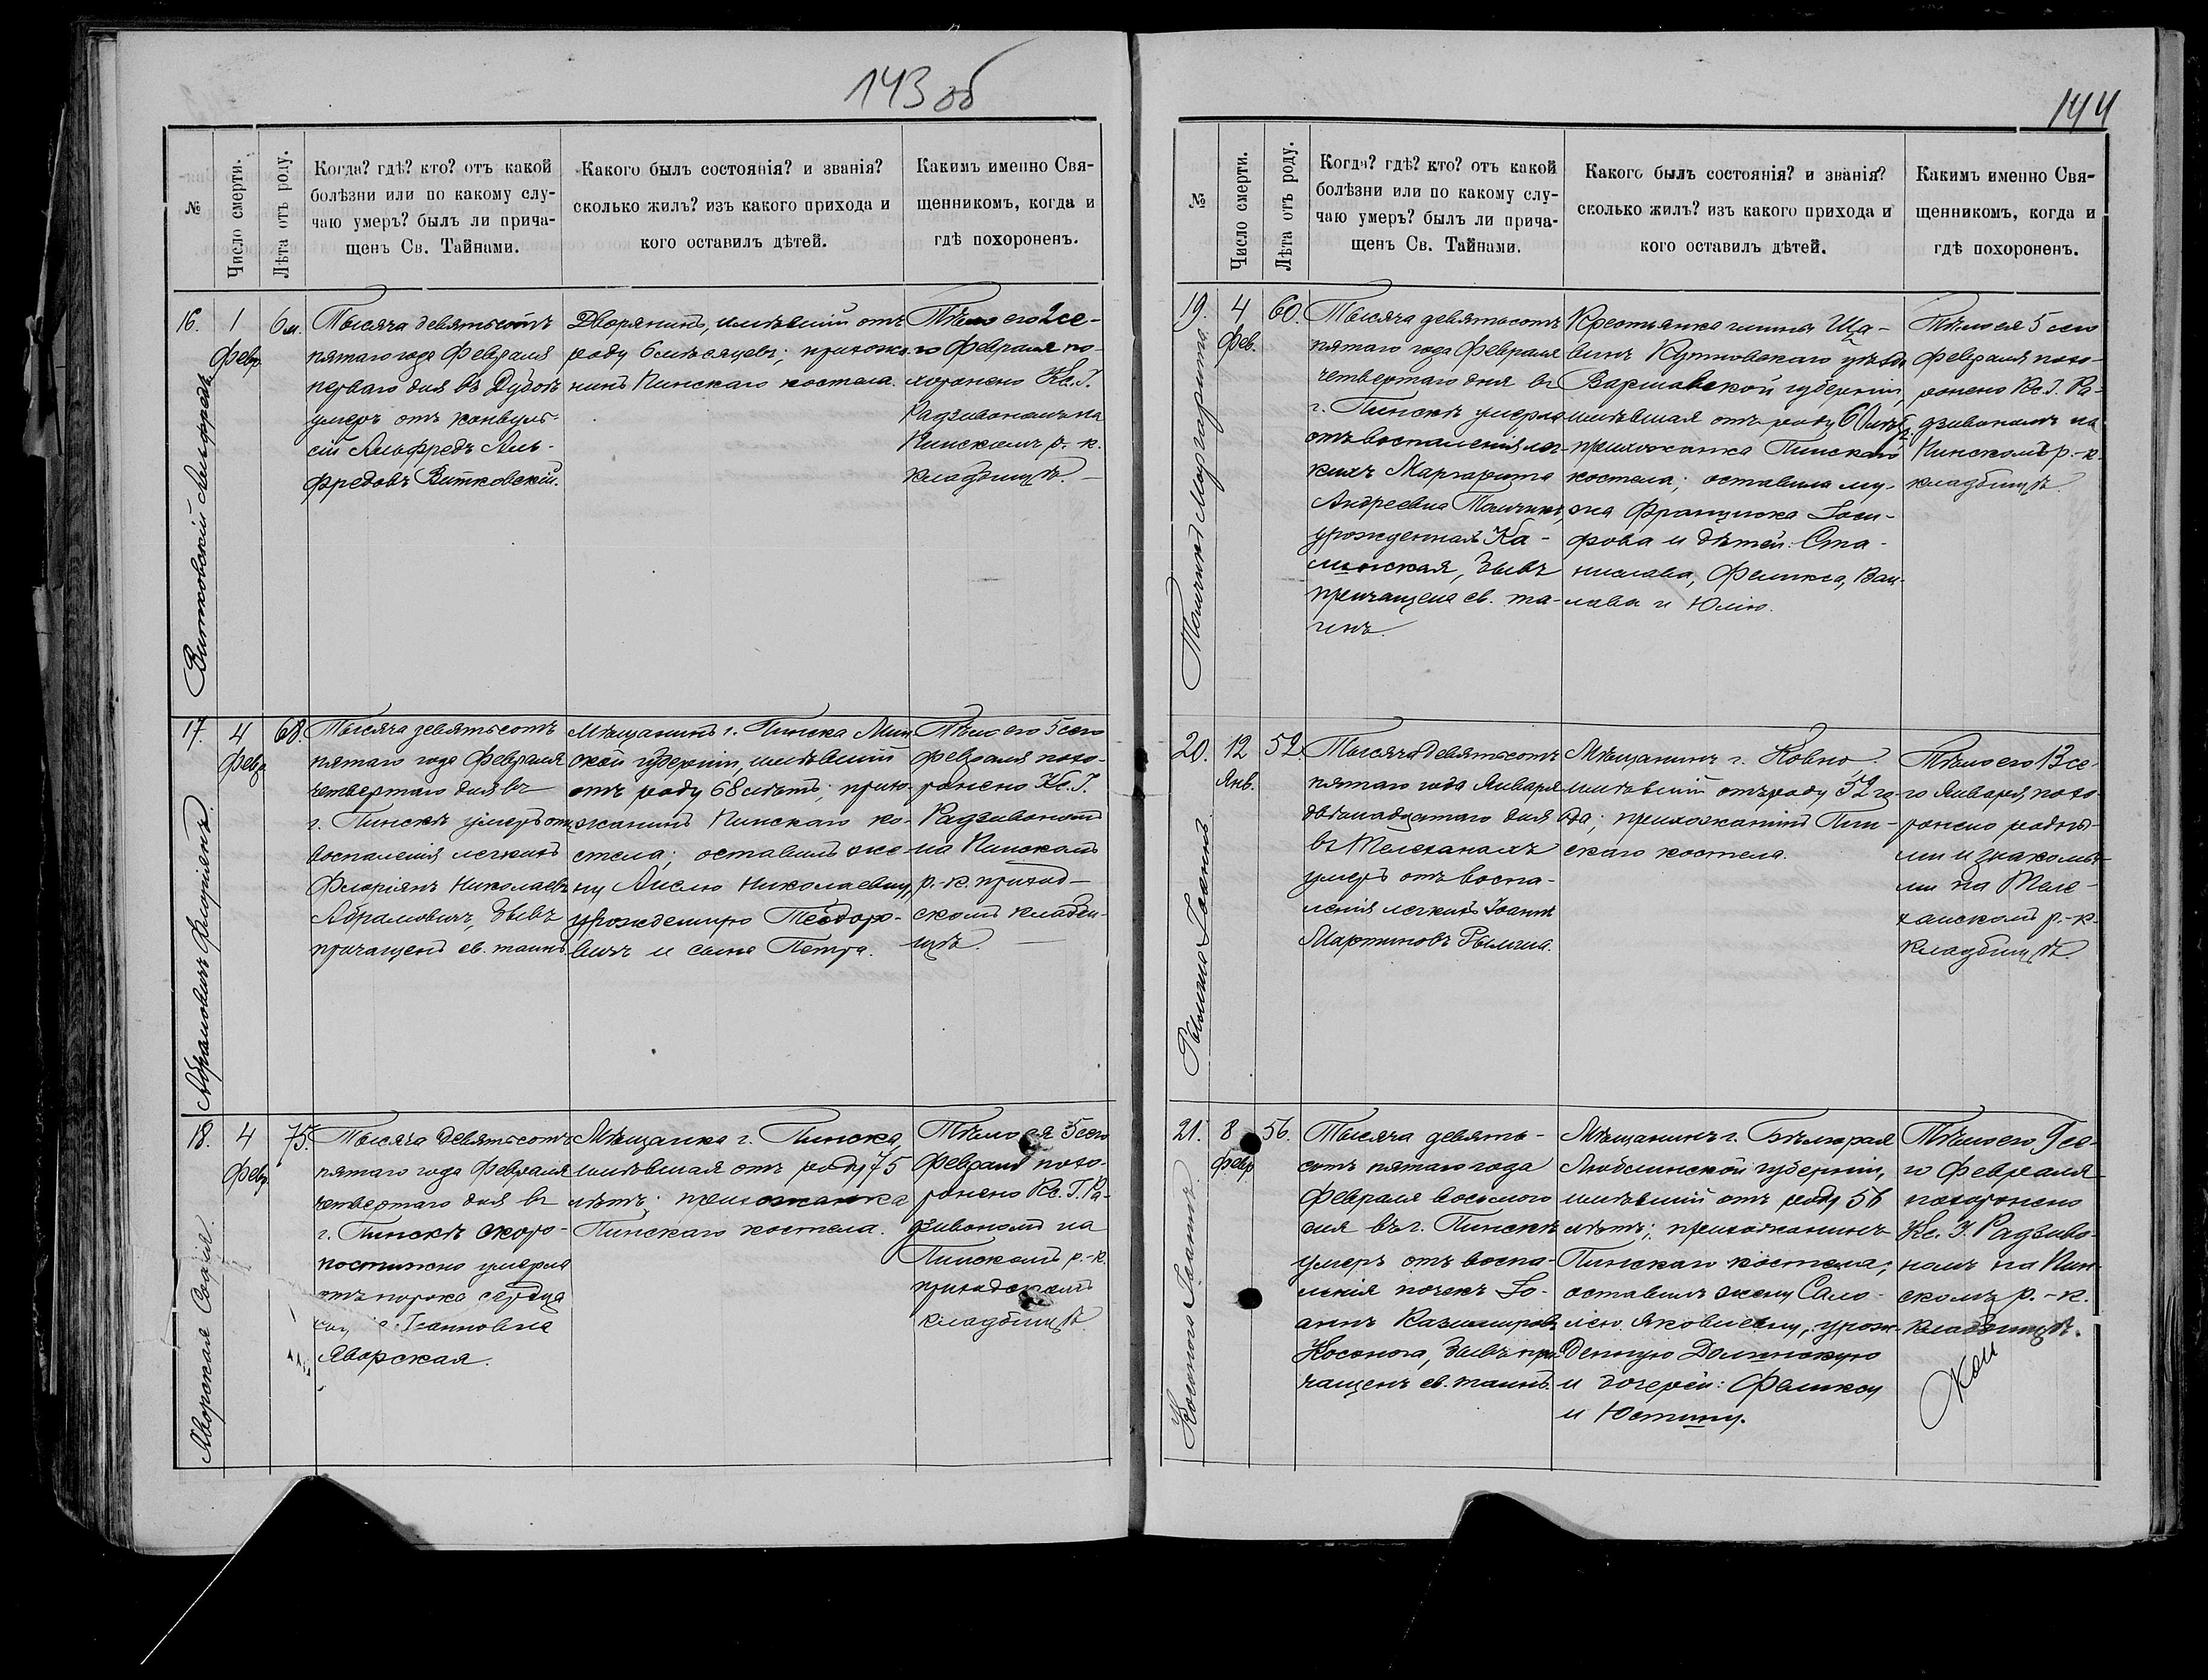 143 об
№
Число смерти.
Лѣта отъ роду.
Когда? гдѣ? кто? отъ какой
болѣзни или по какому слу-
чаю умеръ? былъ ли прича-
щенъ Св. Тайнами.
Какого былъ состоянія? и званія?
сколько жилъ? изъ какого прихода и
кого оставилъ дѣтей.
Какимъ именно Свя-
щенникомъ, когда и
гдѣ похороненъ.
16.
Витковскій Альфредъ
1
февр.
6 м.
Тысяча девятьсотъ
пятаго года Февраля
перваго дня въ Дубоѣ
умеръ отъ конвуль-
сій Альфредъ Аль-
фредовъ Витковскій.
Дворянинъ, имѣвшій отъ
роду 6 мѣсяцевъ; прихожа-
нинъ Пинскаго костела.
Тѣло его 2 се-
го Февраля по-
хоронено Кс. I.
Радзивономъ на
Пинскомъ р.-к.
кладбищѣ. —
17.
Абрамовичъ Флоріянъ.
4
февр.
68.
Тысяча девятьсотъ
пятаго года Февраля
четвертаго дня въ
г. Пинскѣ умеръ отъ
воспаленія легкихъ
Флоріянъ Николаевъ
Абрамовичъ, бывъ
причащенъ св. таинъ.
Мѣщанинъ г. Пинска Мин-
ской губерніи, имѣвшій
отъ роду 68 лѣтъ; прихо-
жанинъ Пинскаго ко-
стела; оставилъ же-
ну Анелю Николаевну,
урожденную Теодоро-
вичъ и сына Петра.
Тѣло его 5 сего
февраля похо-
ронено Кс. I.
Радзивономъ
на Пинскомъ
р.-к. приход-
скомъ кладби-
щѣ. —
18.
Яворская Софія.
4
февр.
75.
Тысяча девятьсотъ
пятаго года Февраля
четвертаго дня въ
г. Пинскѣ скоро-
постижно умерла
отъ порока сердца
Іоанновна
Яворская.
Мѣщанка г. Пинска,
имѣвшая отъ роду 75
лѣтъ; прихожанка
Пинскаго костела.
Тѣло ея 5 сего
февраля похо-
ронено Кс. I. Ра-
дзивономъ на
Пинскомъ р.-к.
приходскомъ
кладбищѣ.
144
№
Число смерти.
Лѣта отъ роду.
Когда? гдѣ? кто? отъ какой
болѣзни или по какому слу-
чаю умеръ? былъ ли прича-
щенъ Св. Тайнами.
Какого былъ состоянія? и званія?
сколько жилъ? изъ какого прихода и
кого оставилъ дѣтей.
Какимъ именно Свя-
щенникомъ, когда и
гдѣ похороненъ.
19.
Маргарита.
4
фев.
60.
Тысяча девятьсотъ
пятаго года Февраля
четвертаго дня въ
г. Пинскѣ умерла
отъ воспаленія лег-
кихъ Маргарита
Андреевна
урожденная Ка-
минская, бывъ
причащена св. та-
инъ.
Крестьянка гмины Ща-
винъ Кутновскаго уѣзда
Варшавской губерніи
имѣвшая отъ роду 60 лѣтъ;
прихожанка Пинскаго
костела; оставила му-
жа Франциска Іоси-
фова и дѣтей: Ста-
нислава, Феликса, Вац-
лава и Юлію.
Тѣло ея 5 сего
февраля похо-
ронено Кс. I. Ра-
дзивономъ на
Пинскомъ р.-к.
кладбищѣ.
20.
Рымша Іоаннъ.
12
Янв.
52.
Тысяча девятьсотъ
пятаго года Января
двѣнадцатаго дня
въ Телеханахъ
умеръ отъ воспа-
ленія легкихъ Іоаннъ
Мартиновъ Рымша.
Мѣщанинъ г. Ковно
имѣвшій отъ роду 52 го-
да; прихожанинъ Пин-
скаго костела.
Тѣло его 13 се-
го Января похо-
ронено родны-
ми и знакомы-
ми на Теле-
ханскомъ р.-к.
кладбищѣ.
21.
Косонога Іоаннъ.
8
февр
56.
Тысяча девять-
сотъ пятаго года
Февраля восьмого
дня въ г. Пинскѣ
умеръ отъ воспа-
ленія почекъ Іо-
аннъ Казимировъ
Косонога, бывъ при-
чащенъ св. таинъ.
Мѣщанинъ г. Бѣлгорая
Люблинской губерніи,
имѣвшій отъ роду 56
лѣтъ; прихожанинъ
Пинскаго костела;
оставилъ жену Сало-
мею Яковлевну, урож-
денную Долинскую
и дочерей:
и Юстину.
Тѣло его 9 се-
го Февраля
похоронено
Кс. I. Радзиво-
номъ на Пин-
скомъ р.-к.
кладбищѣ.